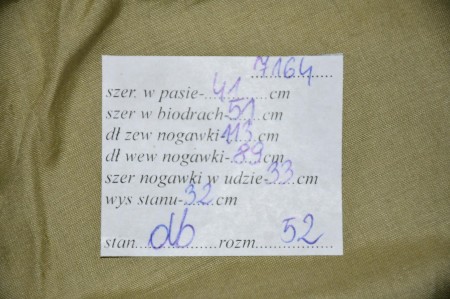 7164
szer. w pasie-41cm
szer w biodrach-51cm
dł zew nogawki-113.cm
dł wew nogawki-89cm
szer nogawki w udzie-33cm
wys stanu-32cm
stan...db...rozm...52